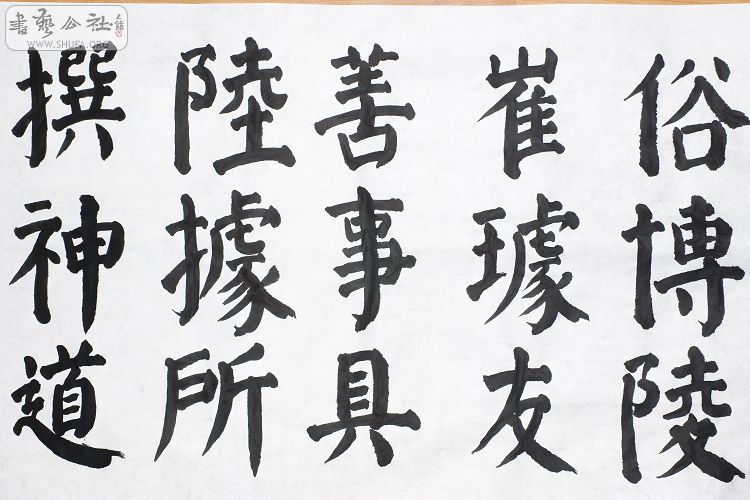 俗博陵
崔璩友
善事具
陸據所
撰神道
書藝公社
WWW.SHUFA.ORG